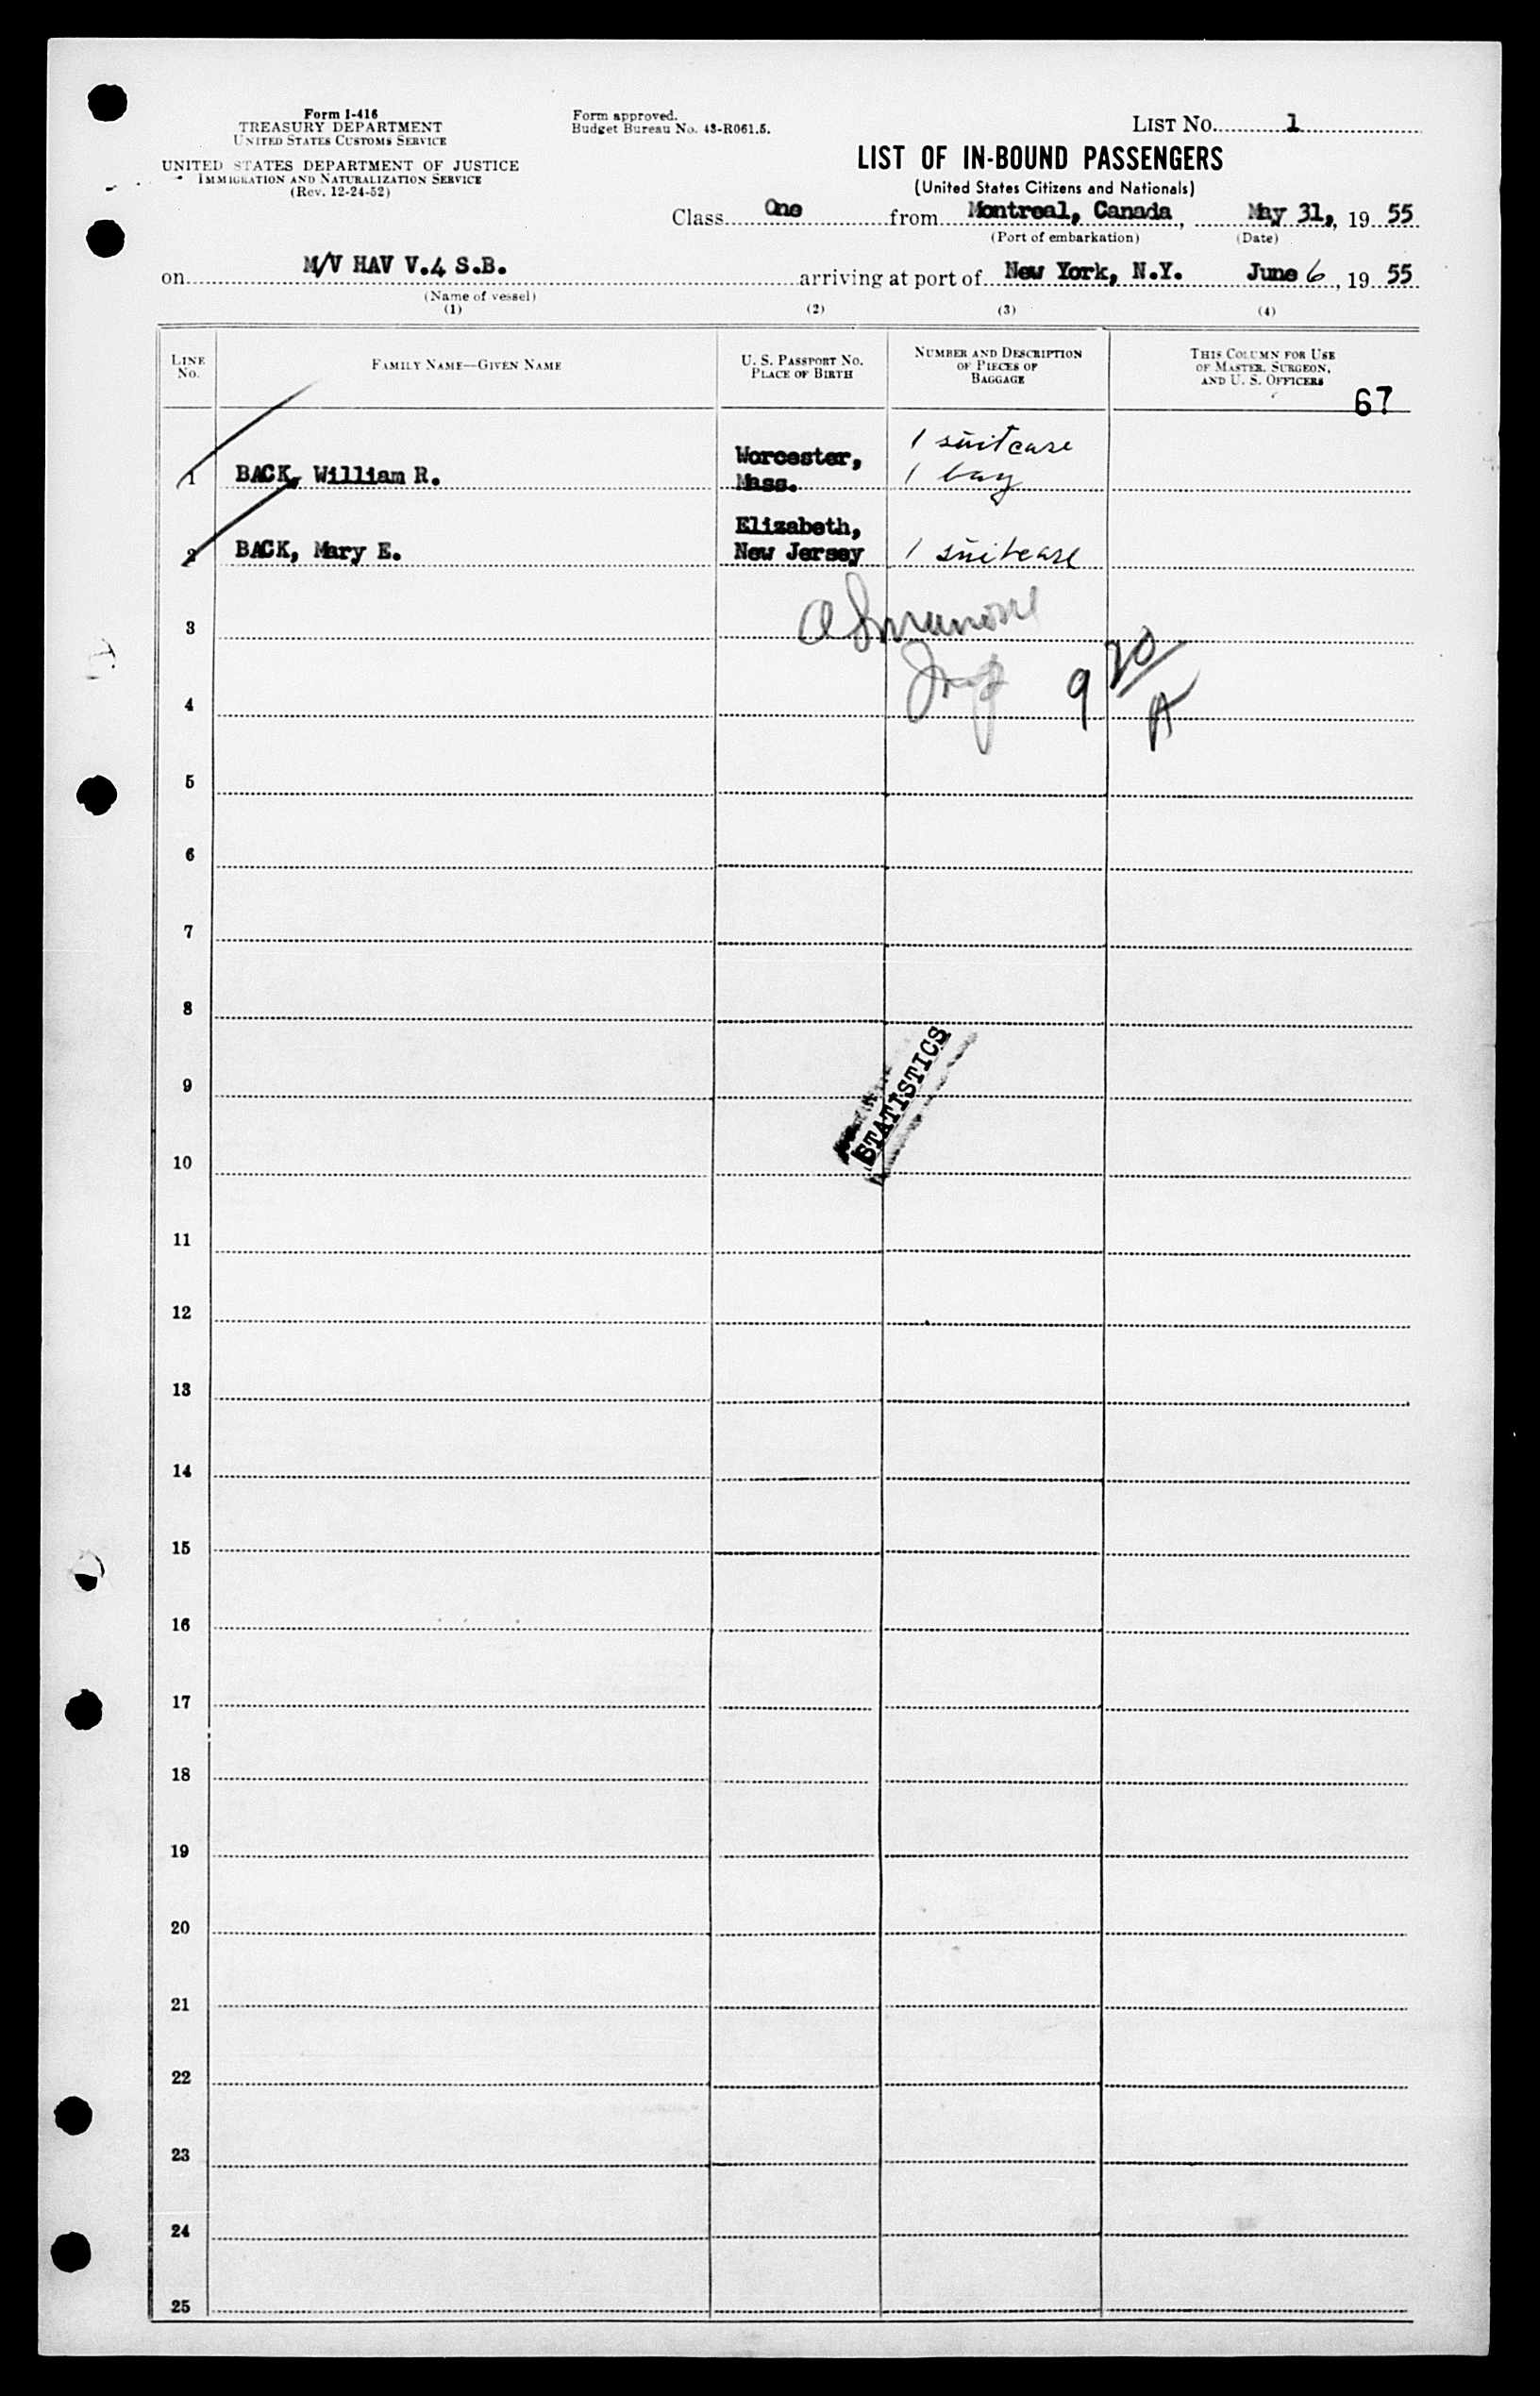 Form I-416
TREASURY DEPARTMENT
UNITED STATES CUSTOMS SERVICE
UNITED STATES DEPARTMENT OF JUSTICE
IMMIGRATION AND NATURALIZATION SERVICE
(Rev. 12-24-52)
Form approved.
Budget Bureau No. 43-R061.5.
LIST NO. 1
LIST OF IN-BOUND PASSENGERS
(United States Citizens and Nationals)
Class One from Montreal, Canada, May 31, 1955
(Port of embarkation) (Date)
on M/V HAV V.4 S.B. arriving at port of New York, N.Y. June 6, 1955
(Name of vessel)
(1) (2) (3) (4)
LINE NO. FAMILY NAME—GIVEN NAME U. S. PASSPORT NO. PLACE OF BIRTH NUMBER AND DESCRIPTION OF PIECES OF BAGGAGE THIS COLUMN FOR USE OF MASTER, SURGEON, AND U. S. OFFICERS
67
1 BACK, William R. Worcester, Mass. 1 suitcase 1 bag
2 BACK, Mary E. Elizabeth, New Jersey 1 suitcase
3
9 20/A
4
5
6
7
8
STATISTICS
9
10
11
12
13
14
15
16
17
18
19
20
21
22
23
24
25